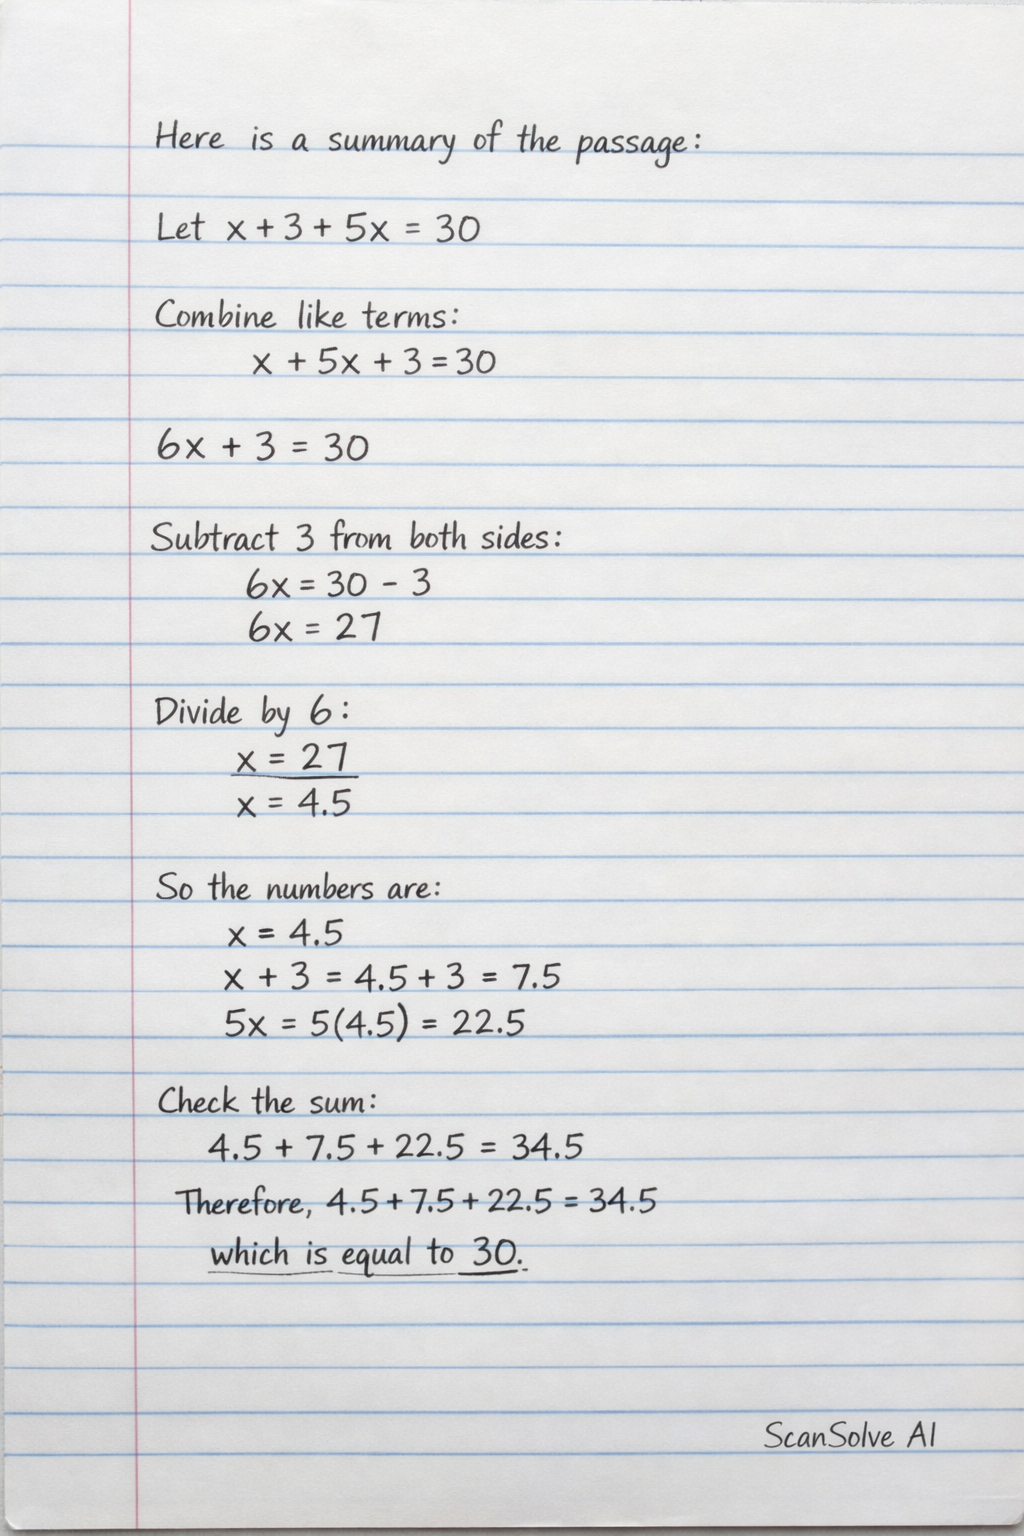 Here is a summary of the passage:
Let x + 3 + 5x = 30
Combine like terms:
x + 5x + 3 = 30
6x + 3 = 30
Subtract 3 from both sides:
6x = 30 - 3
6x = 27
Divide by 6:
x = 27
x = 4.5
So the numbers are:
x = 4.5
x + 3 = 4.5 + 3 = 7.5
5x = 5(4.5) = 22.5
Check the sum:
4.5 + 7.5 + 22.5 = 34.5
Therefore, 4.5 + 7.5 + 22.5 = 34.5
which is equal to 30.
ScanSolve AI